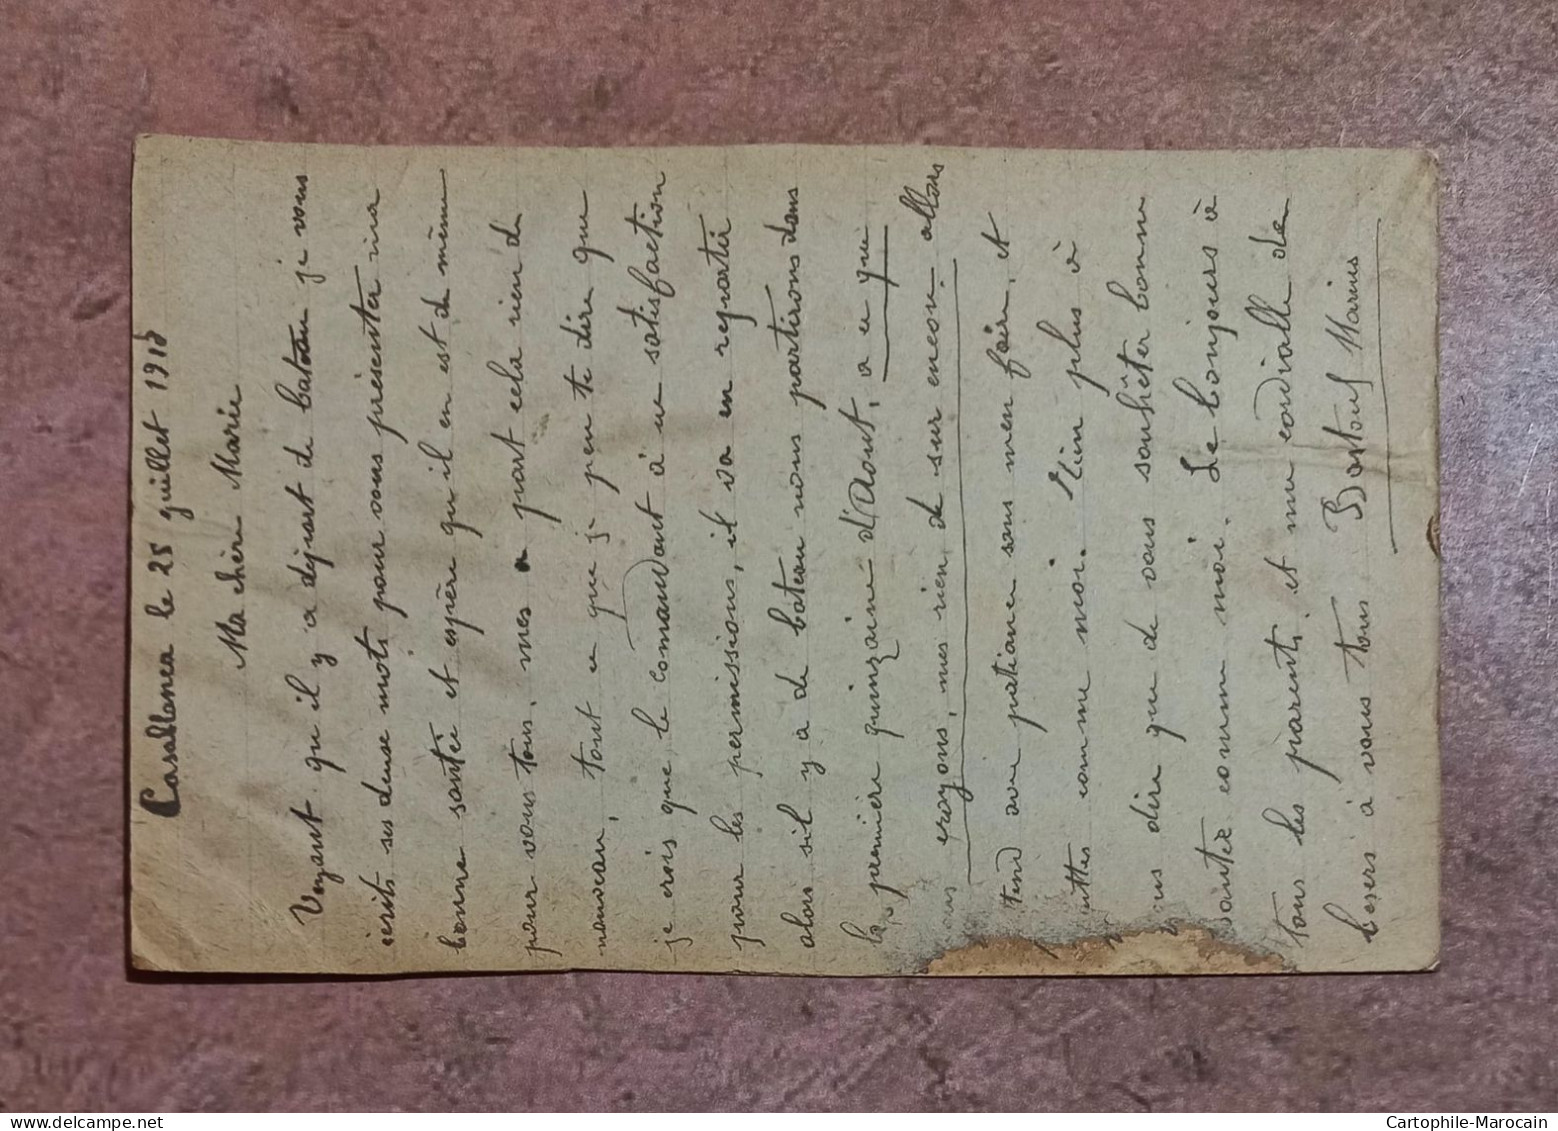 Casablanca le 25 juillet 1918
Ma chère Marie
Voyant qu'il y a déjuart de bateau je vous
écrits ses deuse mots pour vous présenter ma
bonne santée et espère qu'il en est de même
pour vous tous, mes part cela rien de
nouveau, tout ce que je peu te dire que
je crois que le comandant à ue satisfaction
pour les permissions, il va en repartir
alors s'il y a de bateau nous partirons dans
la première quinzaine d'Aout, a ce que
crayons, mes rien de sur encor, allons
tend avec patience sans men fair, et
comme moi. Rien plus à
vous dire que de vous souhêter bonne
santée comm moi. Le bonjours à
tous les parents, et une cordialle de
besers à vous tous Bastouf Marius
Cartophile-Marocain
www.delcampe.net